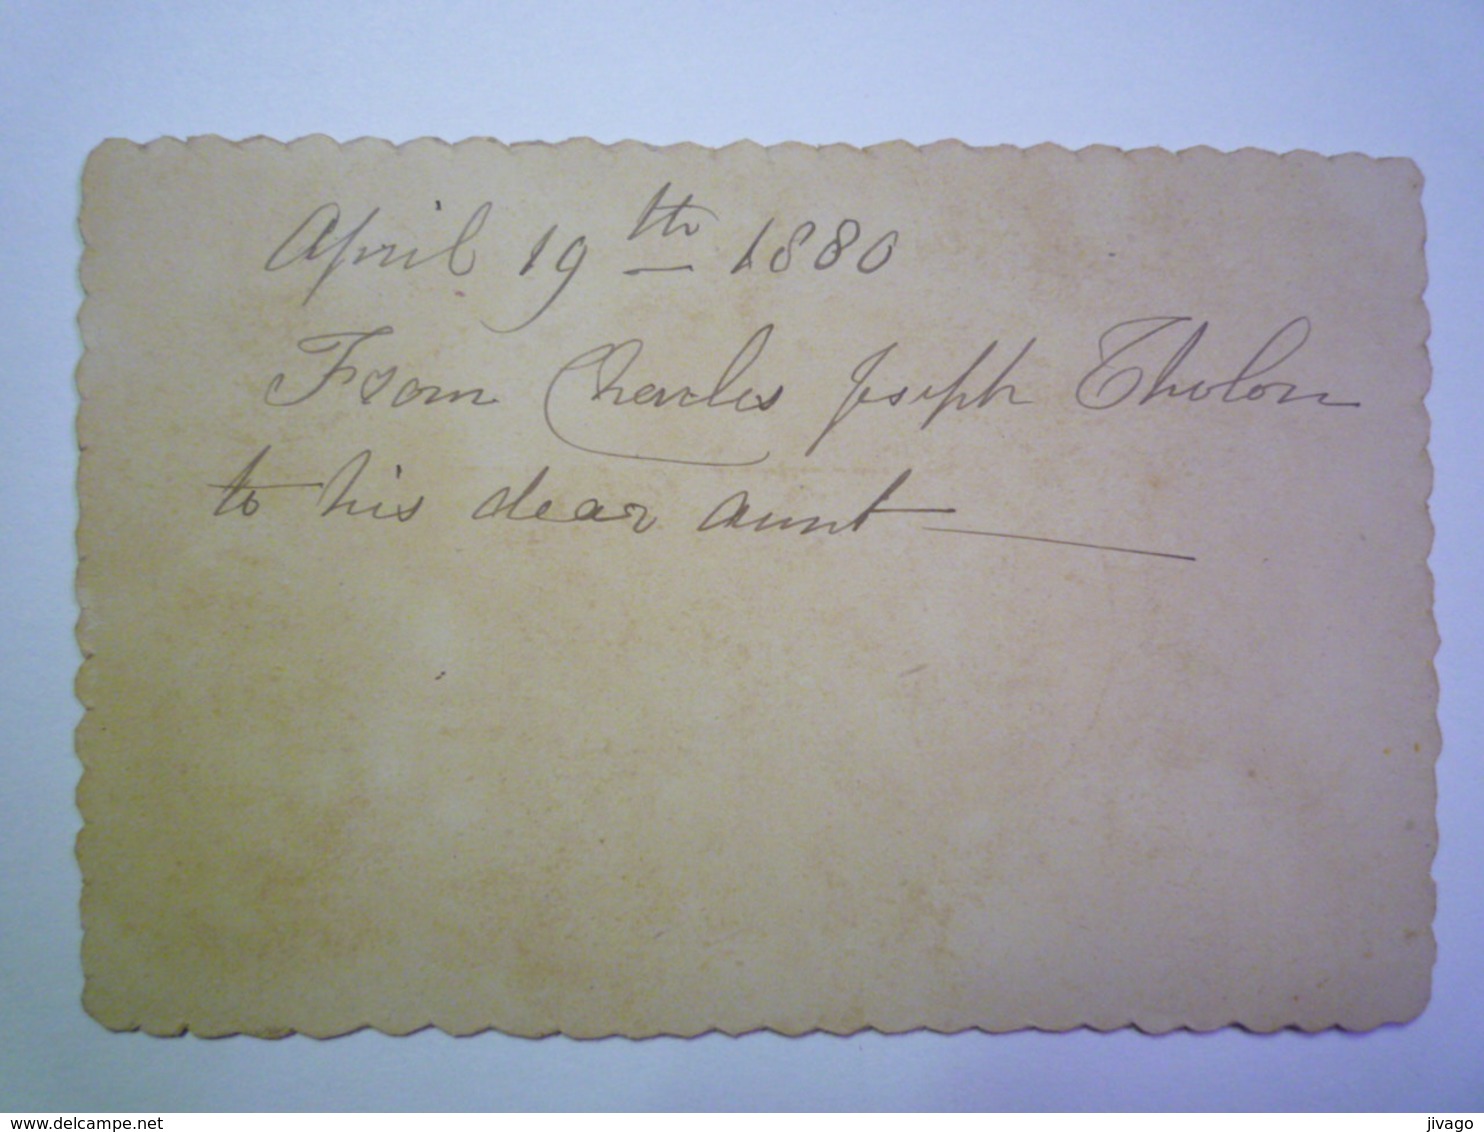 April 19th 1880
From Charles Joseph Tholon
to his dear aunt —
www.delcampe.net
jivago